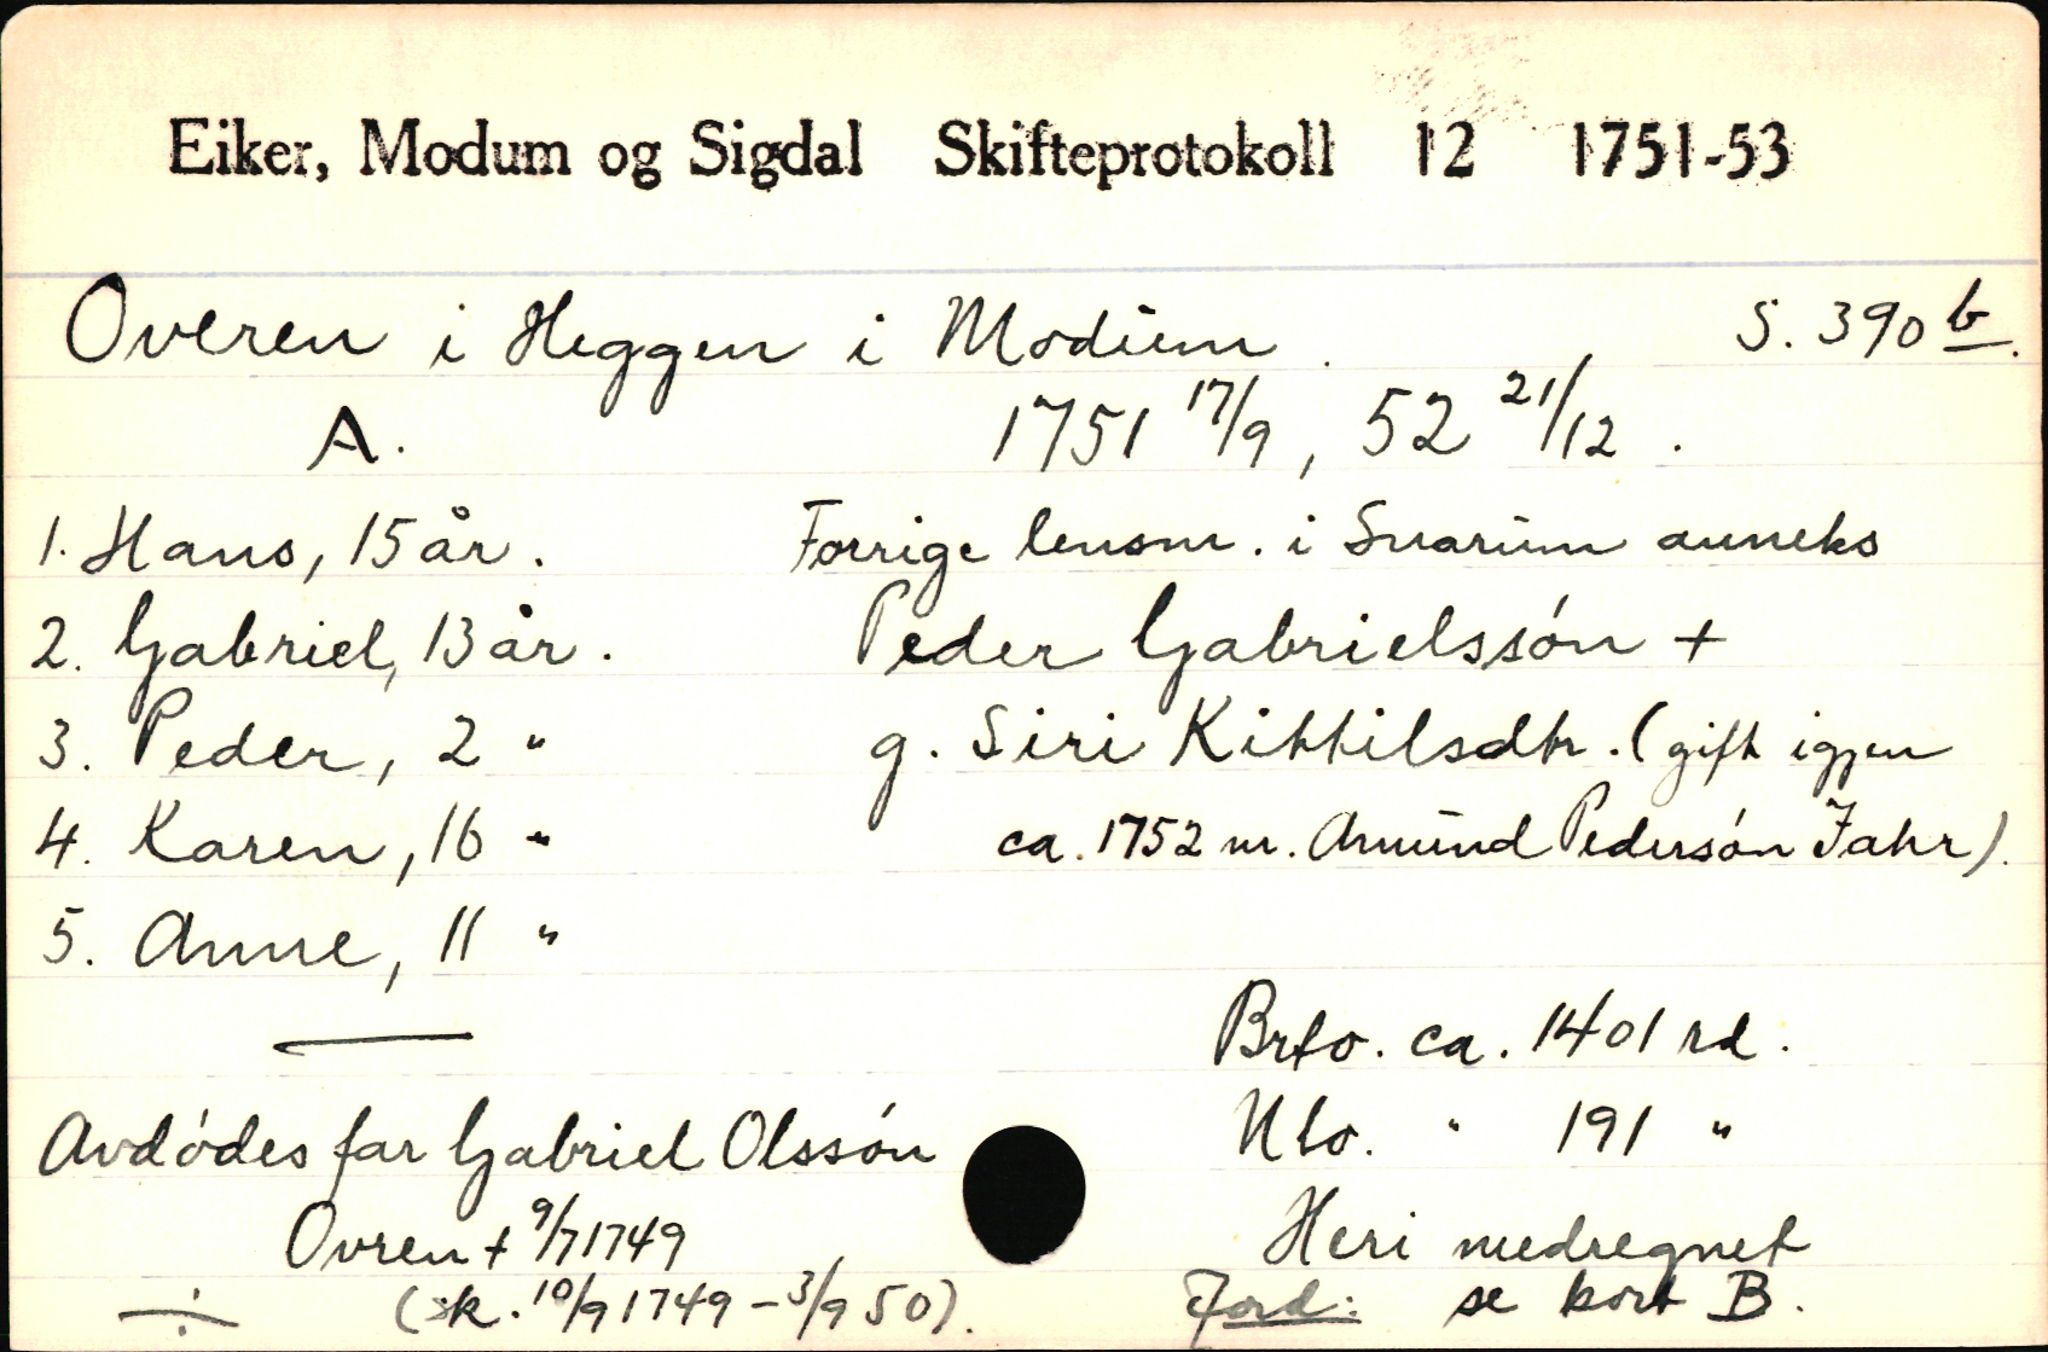 Eiker, Modum og Sigdal Skifteprotokoll 12 1751-53
Overen i Heggen i Modum. S. 390 b.
A. 1751 17/9, 52 21/12.
1. Hans, 15 år. Forrige lensm. i Snarum anneks
2. Gabriel, 13 år. Peder Gabrielssón +
3. Peder, 2 " g. Siri Kittilsdtr. (gift igjen
4. Karen, 16 " ca. 1752 m. Amund Pedersón Fahr).
5. Anne, 11 "
Brto. ca. 1401 rd.
Avdódes far Gabriel Olssón Nto. " 191 "
Ovren + 9/7 1749 Heri medregnet
÷ (sk. 10/9 1749 - 3/9 50). Jord: se kort B.